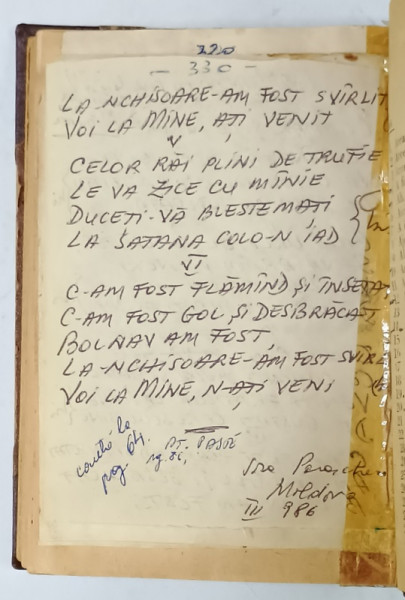 320
- 330 -
LA-NCHISOARE-AM FOST SVÎRLIT
VOI LA MINE, AȚI VENIT
V
CELOR RĂI PLINI DE TRUFIE
LE VA ZICE CU MÎNIE
DUCEȚI-VĂ BLESTEMAȚI
LA SATANA COLO-N IAD
VI
C-AM FOST FLĂMÎND ȘI ÎNSETAT
C-AM FOST GOL ȘI DESBRĂCAT
BOLNAV AM FOST,
LA-NCHISOARE-AM FOST SVÎRL
VOI LA MINE, N-AȚI VENI
caută la
pag. 64.
PT. PAȘTI
Moldova
III 986